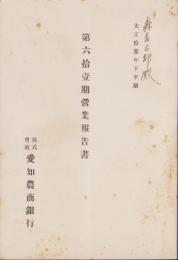 大正拾壹年下半期
第六拾壹期營業報告書
株式會社 愛知農商銀行